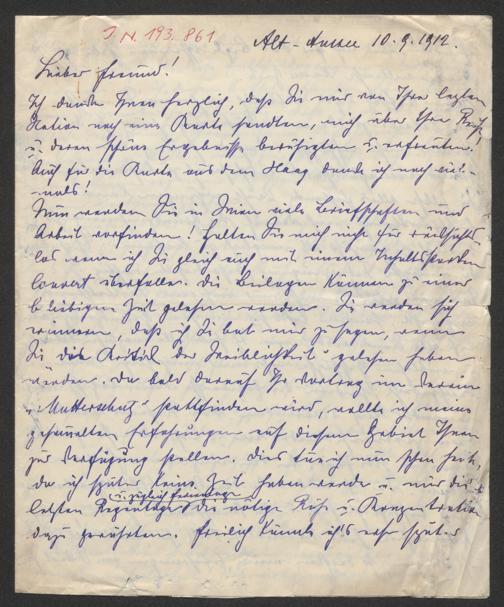 J. N. 193.861
Alt-Aussee 10.9.1912.
Lieber Freund!
Ich danke Ihnen herzlich, daß Sie mir von Ihrer letzten
Station noch eine Karte sandten, mich über Ihre Reise
u. deren schöne Ergebnisse beruhigten u. erfreuten.
Auch für die Karte aus dem Haag danke ich noch viel-
mals!
Nun werden Sie in Wien viele Briefschaften und
Arbeit vorfinden! Halten Sie mich nicht für rücksichts-
los wenn ich Sie gleich auch mit einem Inhaltsstarken
Couvert überfalle. Die Beilagen können zu einer
beliebigen Zeit gelesen werden. Sie werden sich
erinnern, daß ich Sie bat mir zu sagen, wenn
Sie die Kritik der Weiblichkeit" gelesen haben
würden. Da bald darauf Ihr Vortrag im Verein
"Mutterschutz" stattfinden wird, wollte ich meine
gesammelten Erfahrungen auf diesem Gebiet Ihnen
zur Verfügung stellen. Dies tue ich nun schon heute,
da ich später keine Zeit haben werde u. mir die
letzten Regentage die nötige Ruhe u. Konzentration
dazu gewährten. Freilich könnte ich's erst später